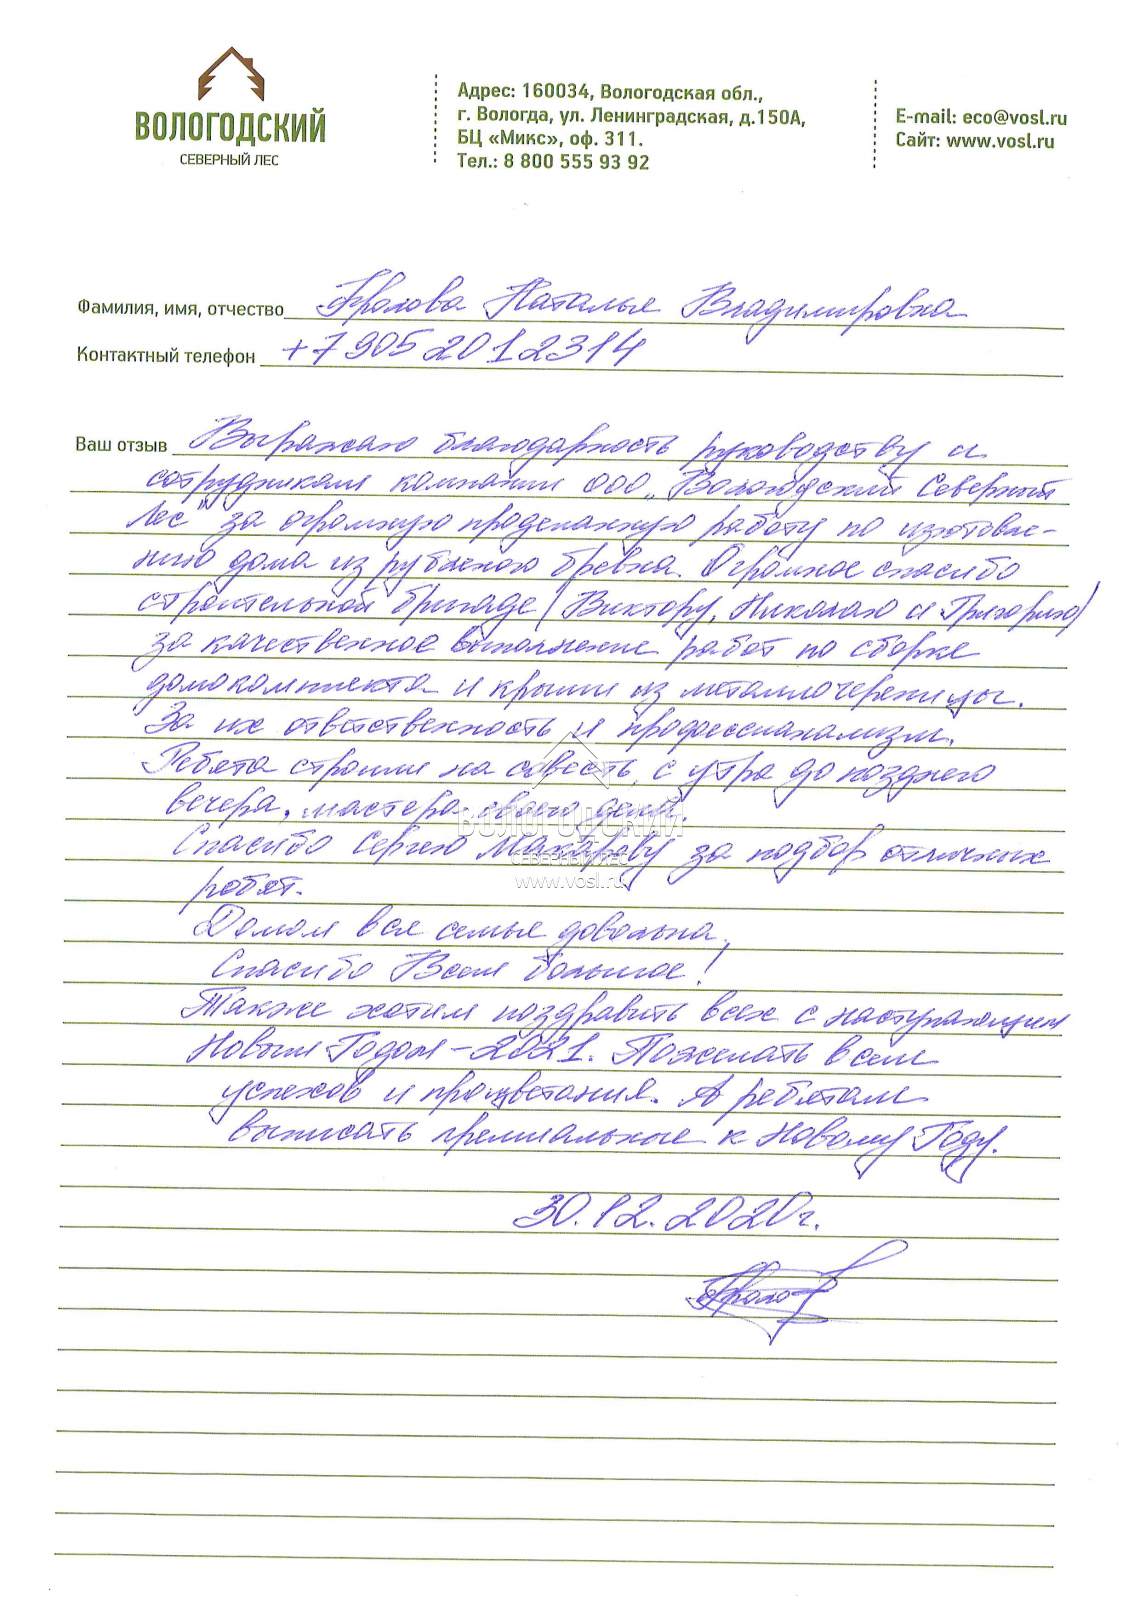 ВОЛОГОДСКИЙ
СЕВЕРНЫЙ ЛЕС
Адрес: 160034, Вологодская обл.,
г. Вологда, ул. Ленинградская, д.150А,
БЦ «Микс», оф. 311.
Тел.: 8 800 555 93 92
E-mail: eco@vosl.ru
Сайт: www.vosl.ru
Фамилия, имя, отчество Фролова Наталья Владимировна
Контактный телефон +7 905 201 23 14
Ваш отзыв Выражаю благодарность руководству и
сотрудникам компании ООО „Вологодский Северный
Лес" за огромную проделанную работу по изготовле-
нию дома из рубленого бревна. Огромное спасибо
строительной бригаде (Виктору, Николаю и Григорию)
за качественное выполнение работ по сборке
домокомплекта и крыши из металлочерепицы.
За их ответственность и профессионализм.
Ребята строили на совесть, с утра до позднего
вечера, мастера своего дела.
Спасибо Сергею Макарову за подбор отличных
ребят.
Домом вся семья довольна.
Спасибо Всем большое!
Также хотим поздравить всех с наступающим
Новым Годом - 2021. Пожелать всем
успехов и процветания. А ребятам
выписать премиальные к Новому Году.
30.12.2020г.
ВОЛОГОДСКИЙ
СЕВЕРНЫЙ ЛЕС
www.vosl.ru